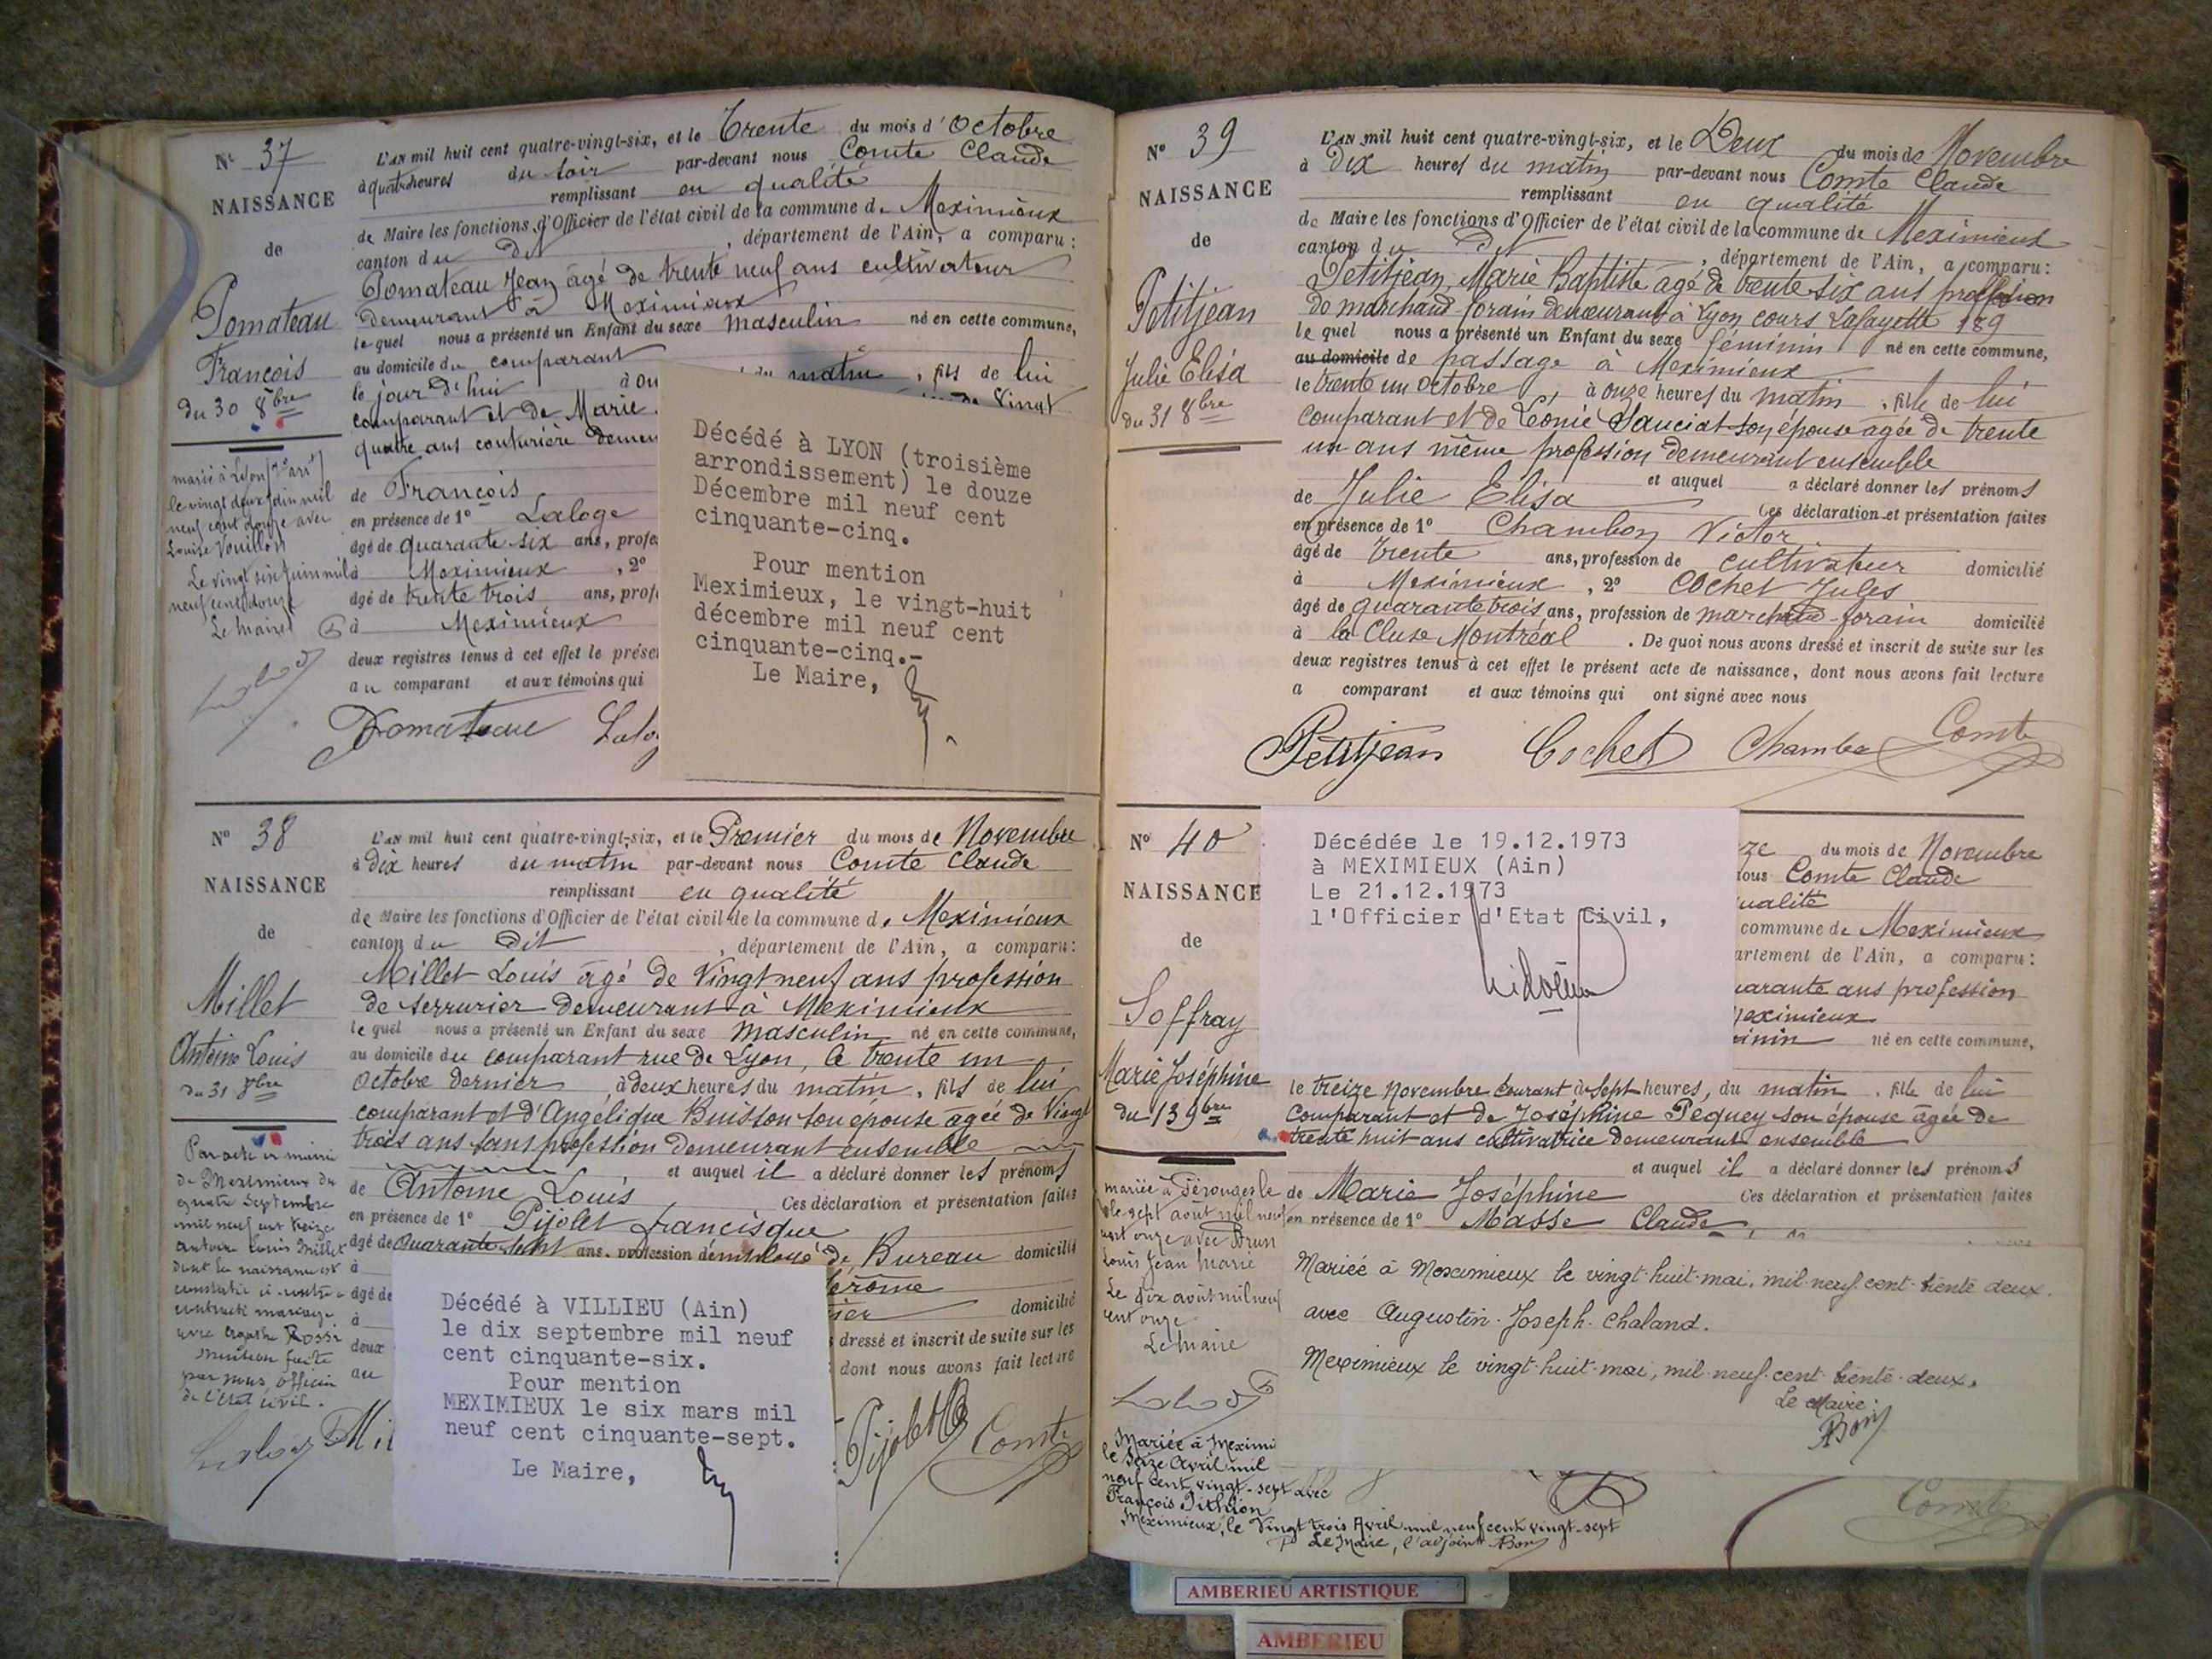 N° 37
NAISSANCE
de
Pomateau
François
du 30 8bre
marié à Lyon
le vingt deux juin mil
neuf cent douze avec
Louise Vouillon
Le vingt six juin mil
neuf cent douze
Le maire
L'AN mil huit cent quatre-vingt-six, et le Trente du mois d'Octobre
à quatre heures du soir par-devant nous Comte Claude
remplissant en qualité
de Maire les fonctions d'Officier de l'état civil de la commune de Meximieux
canton du Dit, département de l'Ain, a comparu :
Pomateau Jean âgé de trente neuf ans cultivateur
demeurant à Meximieux
le quel nous a présenté un Enfant du sexe masculin né en cette commune,
au domicile du comparant
le jour d'hui à on du matin, fils de lui
comparant et de Marie de Vingt
quatre ans couturière demeu
de François
en présence de 1° Laloge
âgé de quarante six ans, profe
à Meximieux, 2°
âgé de trente trois ans, prof
à Meximieux
deux registres tenus à cet effet le prése
au comparant et aux témoins qui
Pomateau Lalo
Décédé à LYON (troisième
arrondissement) le douze
Décembre mil neuf cent
cinquante-cinq.
Pour mention
Meximieux, le vingt-huit
décembre mil neuf cent
cinquante-cinq.-
Le Maire,
N° 38
NAISSANCE
de
Millet
Antoine Louis
du 31 8bre
Par acte en mairie
de Meximieux du
quatre Septembre
mil neuf cent treize
Antoine Louis Millet
dont la naissance est
constatée ci-contre a
contracté mariage
avec Agathe Rossi
Mention faite
par nous, officier
de l'Etat civil.
L'AN mil huit cent quatre-vingt-six, et le Premier du mois de Novembre
à Dix heures du matin par-devant nous Comte Claude
remplissant en qualité
de Maire les fonctions d'Officier de l'état civil de la commune de Meximieux
canton du Dit, département de l'Ain, a comparu :
Millet Louis âgé de Vingt neuf ans profession
de serrurier demeurant à Meximieux
le quel nous a présenté un Enfant du sexe masculin né en cette commune,
au domicile du comparant rue de Lyon, le trente un
octobre dernier à deux heures du matin, fils de lui
comparant et d'Angélique Buisson son épouse âgée de Vingt
trois ans sans profession demeurant ensemble
et auquel il a déclaré donner les prénoms
de Antoine Louis Ces déclaration et présentation faites
en présence de 1° Pijolet francisque
âgé de Quarante sept ans, profession d'employé de Bureau domicilié
à érôme
âgé de ier domicilié
à s dressé et inscrit de suite sur les
deux dont nous avons fait lecture
au
Mil Pijolet Comte
Décédé à VILLIEU (Ain)
le dix septembre mil neuf
cent cinquante-six.
Pour mention
MEXIMIEUX le six mars mil
neuf cent cinquante-sept.
Le Maire,
N° 39
NAISSANCE
de
Petitjean
Julie Elisa
du 31 8bre
L'AN mil huit cent quatre-vingt-six, et le Deux du mois de Novembre
à Dix heures du matin par-devant nous Comte Claude
remplissant en qualité
de Maire les fonctions d'Officier de l'état civil de la commune de Meximieux
canton du Dit, département de l'Ain, a comparu :
Petitjean, Marie Baptiste âgé de trente six ans profession
de marchand forain demeurant à Lyon cours Lafayette 189
le quel nous a présenté un Enfant du sexe féminin né en cette commune,
au domicile de passage à Meximieux
le trente un Octobre, à onze heures du matin, fille de lui
comparant et de Léonie Sauciat son épouse âgée de trente
un ans même profession demeurant ensemble
et auquel a déclaré donner les prénoms
de Julie Elisa Ces déclaration et présentation faites
en présence de 1° Chambon Victor
âgé de trente ans, profession de cultivateur domicilié
à Meximieux, 2° Cochet Jules
âgé de quarante trois ans, profession de marchand-forain domicilié
à la Cluse Montréal. De quoi nous avons dressé et inscrit de suite sur les
deux registres tenus à cet effet le présent acte de naissance, dont nous avons fait lecture
a comparant et aux témoins qui ont signé avec nous
Petitjean Cochet Chambon Comte
N° 40
NAISSANCE
de
Soffray
Marie Joséphine
du 13 9bre
mariée à Pérouges le
sept août mil neuf
cent onze avec Brun
Louis Jean Marie
Le dix août mil neuf
cent onze
Le maire
Mariée à Meximi
le Seize Avril mil
neuf cent vingt-sept avec
François Pithion
Meximieux, le Vingt trois Avril mil neuf cent vingt-sept
Le Maire, l'adjoint Bon
Décédée le 19.12.1973
à MEXIMIEUX (Ain)
Le 21.12.1973
l'Officier d'Etat Civil,
ze du mois de Novembre
nous Comte Claude
ualité
commune de Meximieux
artement de l'Ain, a comparu :
uarante ans profession
eximieux
inin né en cette commune,
le treize Novembre courant à Sept heures, du matin, fille de lui
comparant et de Joséphine Pequey son épouse âgée de
trente huit ans cultivatrice demeurant ensemble
et auquel il a déclaré donner les prénoms
de Marie Joséphine Ces déclaration et présentation faites
en présence de 1° Masse Claude
Mariée à Meximieux le vingt-huit mai, mil neuf cent trente deux.
avec Augustin Joseph Chaland.
Meximieux le vingt-huit mai, mil neuf cent trente-deux.
Le Maire :
Bon
Comte
AMBERIEU ARTISTIQUE
AMBERIEU